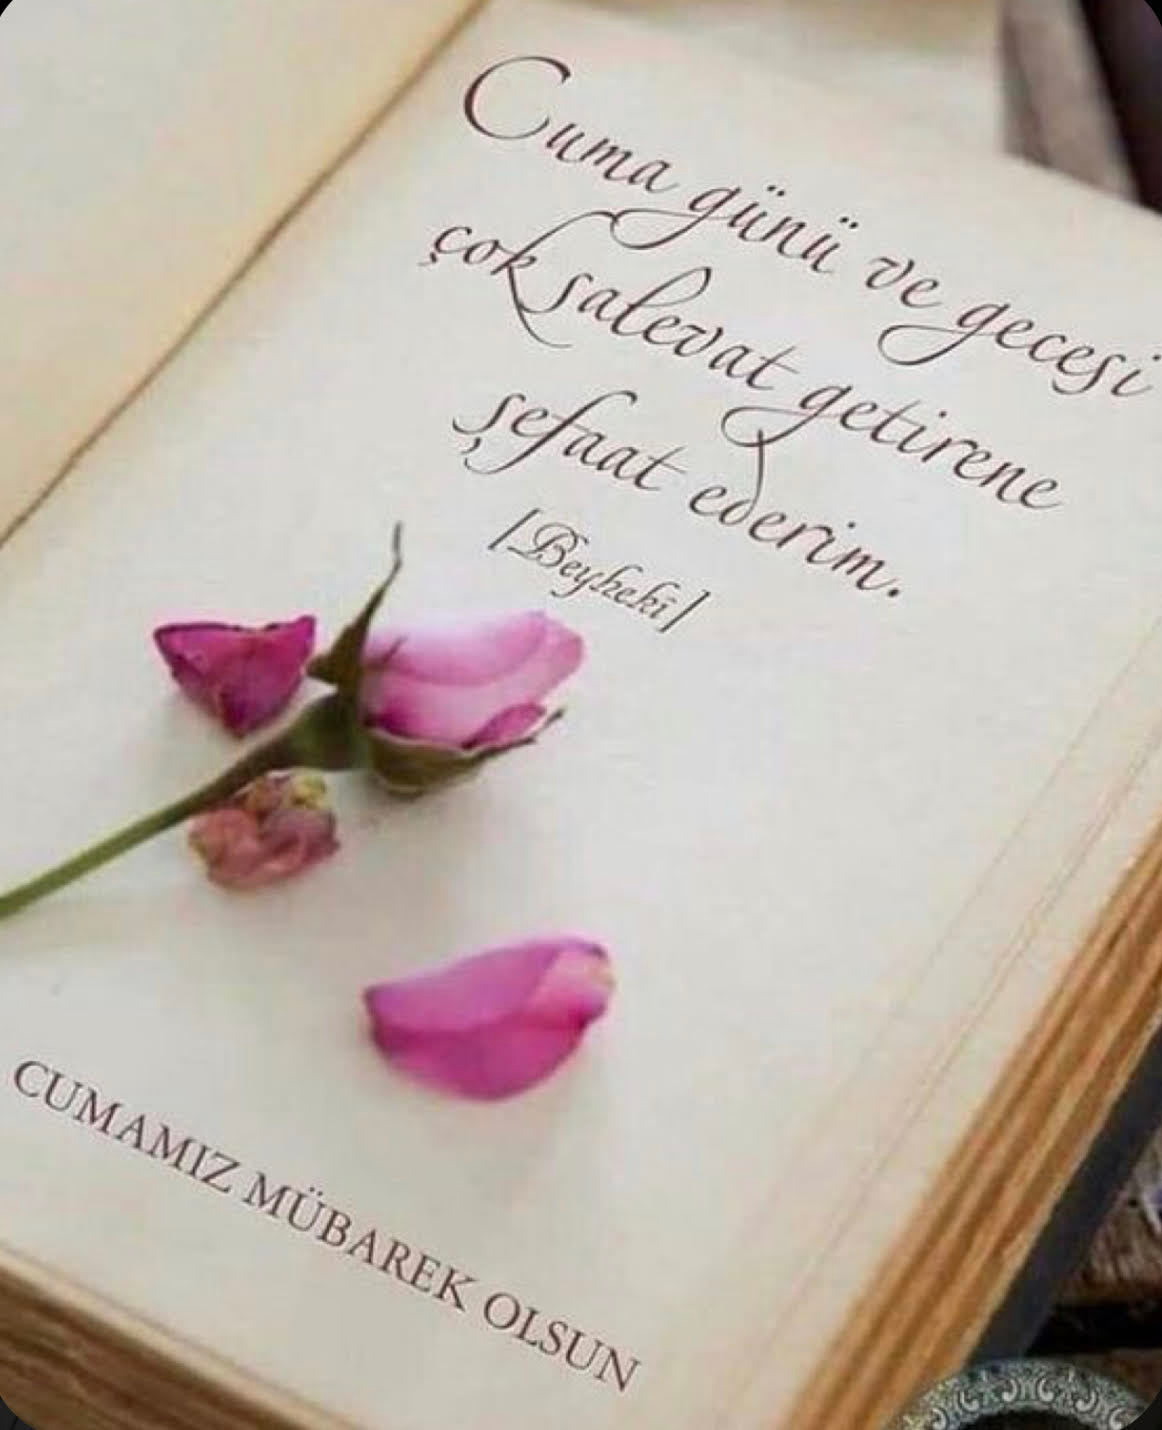 Cuma günü ve gecesi
çok salevat getirene
şefaat ederim.
[Beyhekî]
CUMAMIZ MÜBAREK OLSUN